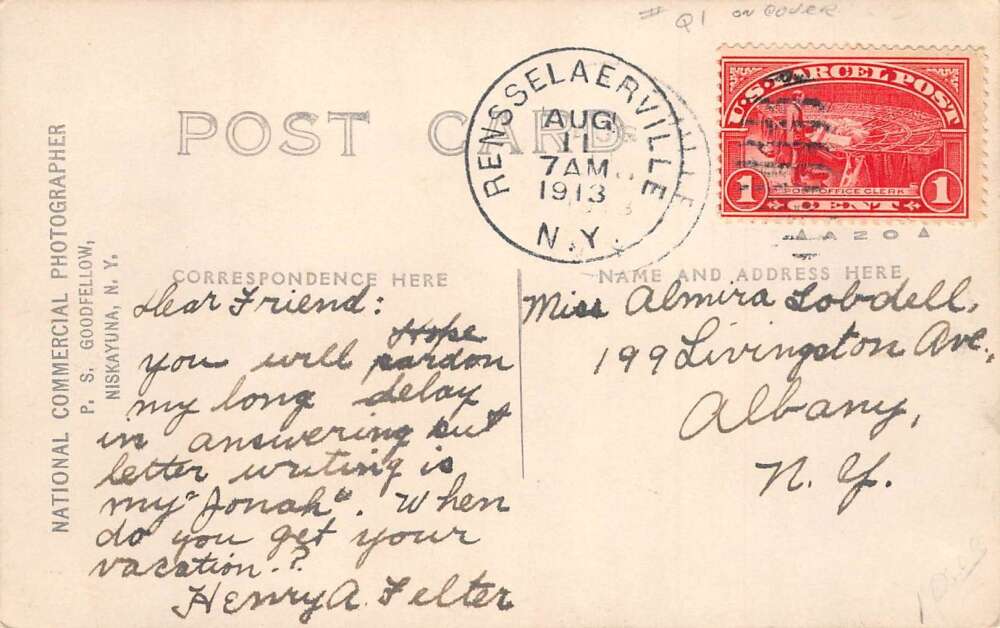 # Q1 ON COVER
U.S. PARCEL POST
POST OFFICE CLERK
1 CENT 1
RENSSELAERVILLE
AUG
11
7 AM
1913
N.Y.
A 20
POST CARD
NATIONAL COMMERCIAL PHOTOGRAPHER
P. S. GOODFELLOW,
NISKAYUNA, N. Y.
CORRESPONDENCE HERE
Dear Friend:
Hope
you will pardon
my long delay
in answering but
letter writing is
my "Jonah". When
do you get your
vacation.?
Henry A. Felter
NAME AND ADDRESS HERE
Miss Almira Lobdell,
199 Livingston Ave.,
Albany,
N. Y.